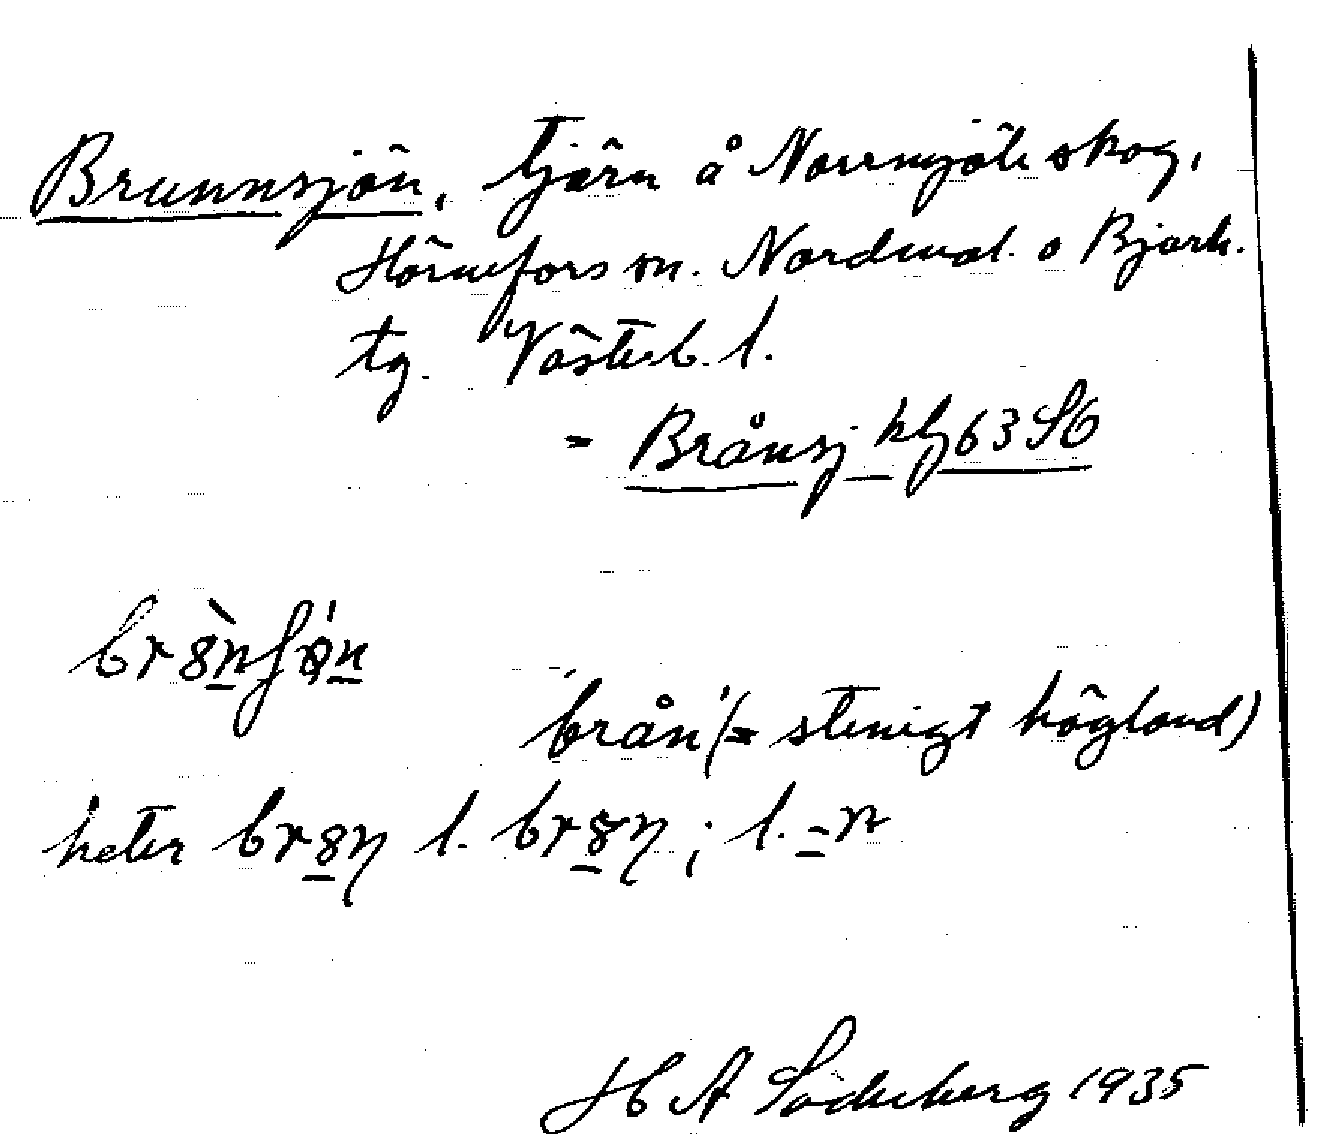 Brunnsjön, tjärn å Norrmjöle skog,
Hörnefors sn. Nordmal. o Bjurh.
tg. Västerb. l.
= Brånsj kbl 63 S6
brån (= stenigt högland)
heter l. ; l. -n
H A Söderberg 1935